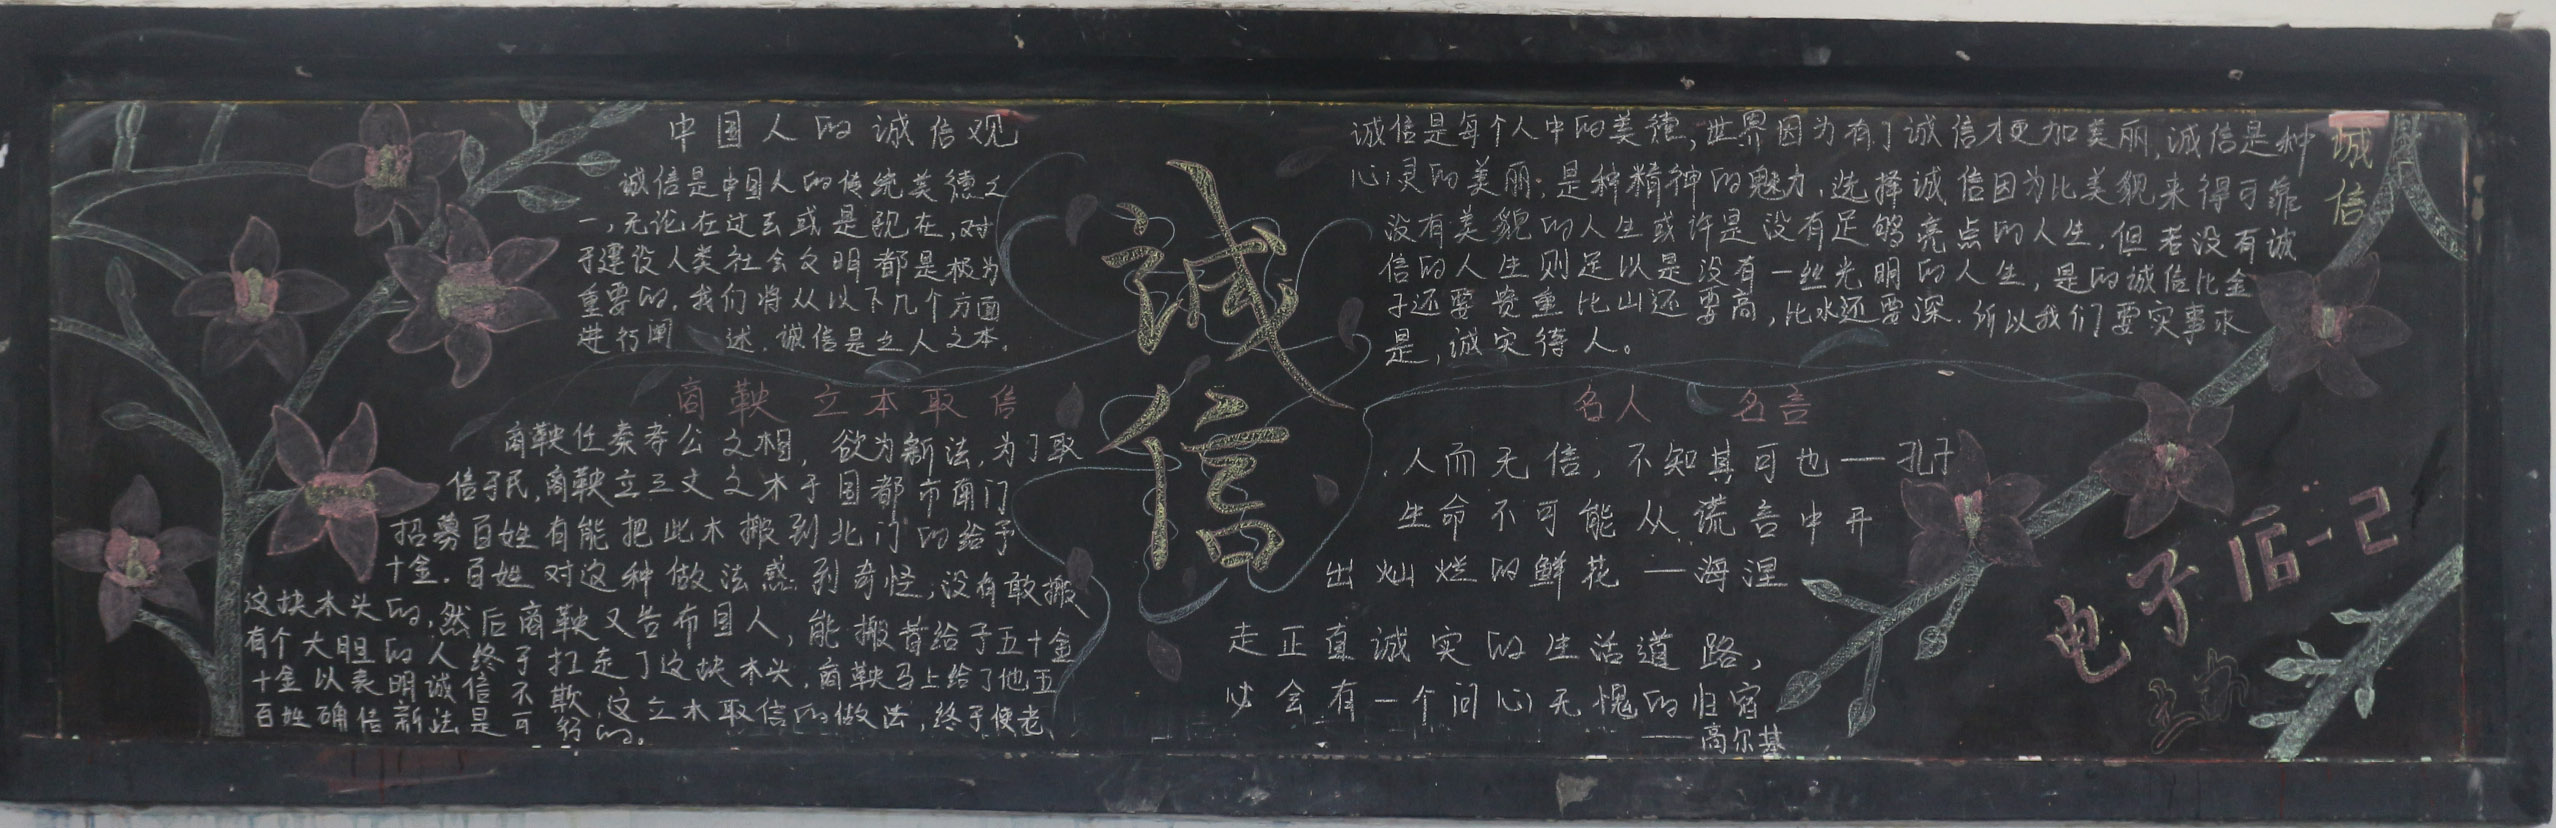 中国人的诚信观
诚信是中国人的传统美德之
一,无论在过去或是现在,对
于建设人类社会文明都是极为
重要的,我们将从以下几个方面
进行阐述.诚信是立人之本.
商鞅立本取信
商鞅任秦孝公之相,欲为新法,为了取
信于民,商鞅立三丈之木于国都市南门
招募百姓有能把此木搬到北门的给予
十金.百姓对这种做法感到奇怪,没有敢搬
这块木头的,然后商鞅又告布国人,能搬着给予五十金
有个大胆的人终于扛走了这块木头,商鞅马上给了他五
十金以表明诚信不欺,这立木取信的做法,终于使老
百姓确信新法是可行的。
诚
信
诚信是每个人中的美德,世界因为有了诚信才更加美丽,诚信是种
心灵的美丽,是种精神的魅力,选择诚信因为比美貌来得可靠
没有美貌的人生或许是没有足够亮点的人生,但若没有诚
信的人生则足以是没有一丝光明的人生,是的诚信比金
子还要贵重比山还要高,比水还要深.所以我们要实事求
是,诚实待人。
名人名言
人而无信,不知其可也——孔子
生命不可能从谎言中开
出灿烂的鲜花——海涅
走正直诚实的生活道路,
必会有一个问心无愧的归宿
——高尔基
诚
信
人
电子16-2